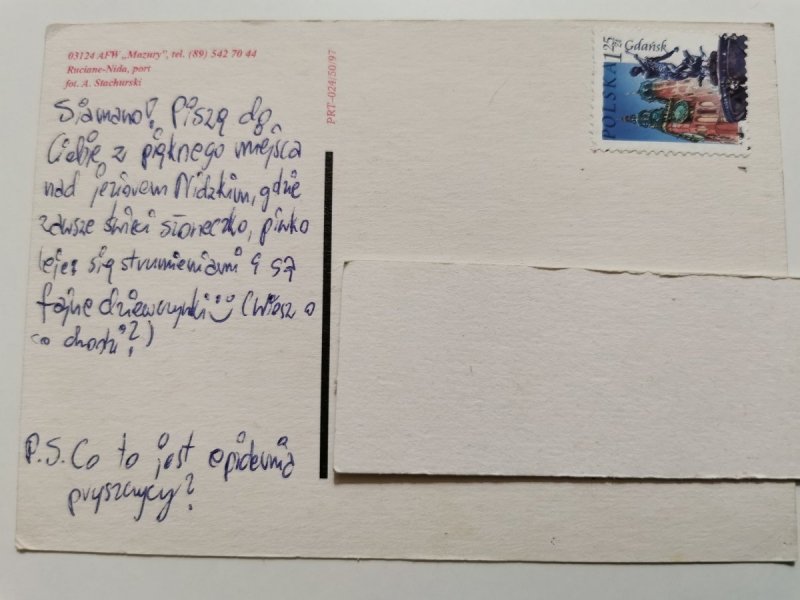 03124 AFW „Mazury”, tel. (89) 542 70 44
Ruciane-Nida, port
fot. A. Stachurski
PRT-024/50/97
POLSKA 1,25 zł
Gdańsk
Siamano! Piszę do
Ciebie z pięknego miejsca
nad jeziorem Nidzkim, gdzie
zawsze świeci słoneczko, piwko
leje się strumieniami i są
fajne dziewczynki (wiesz o
co chodzi?)
P.S. Co to jest epidemia
pryszczycy?